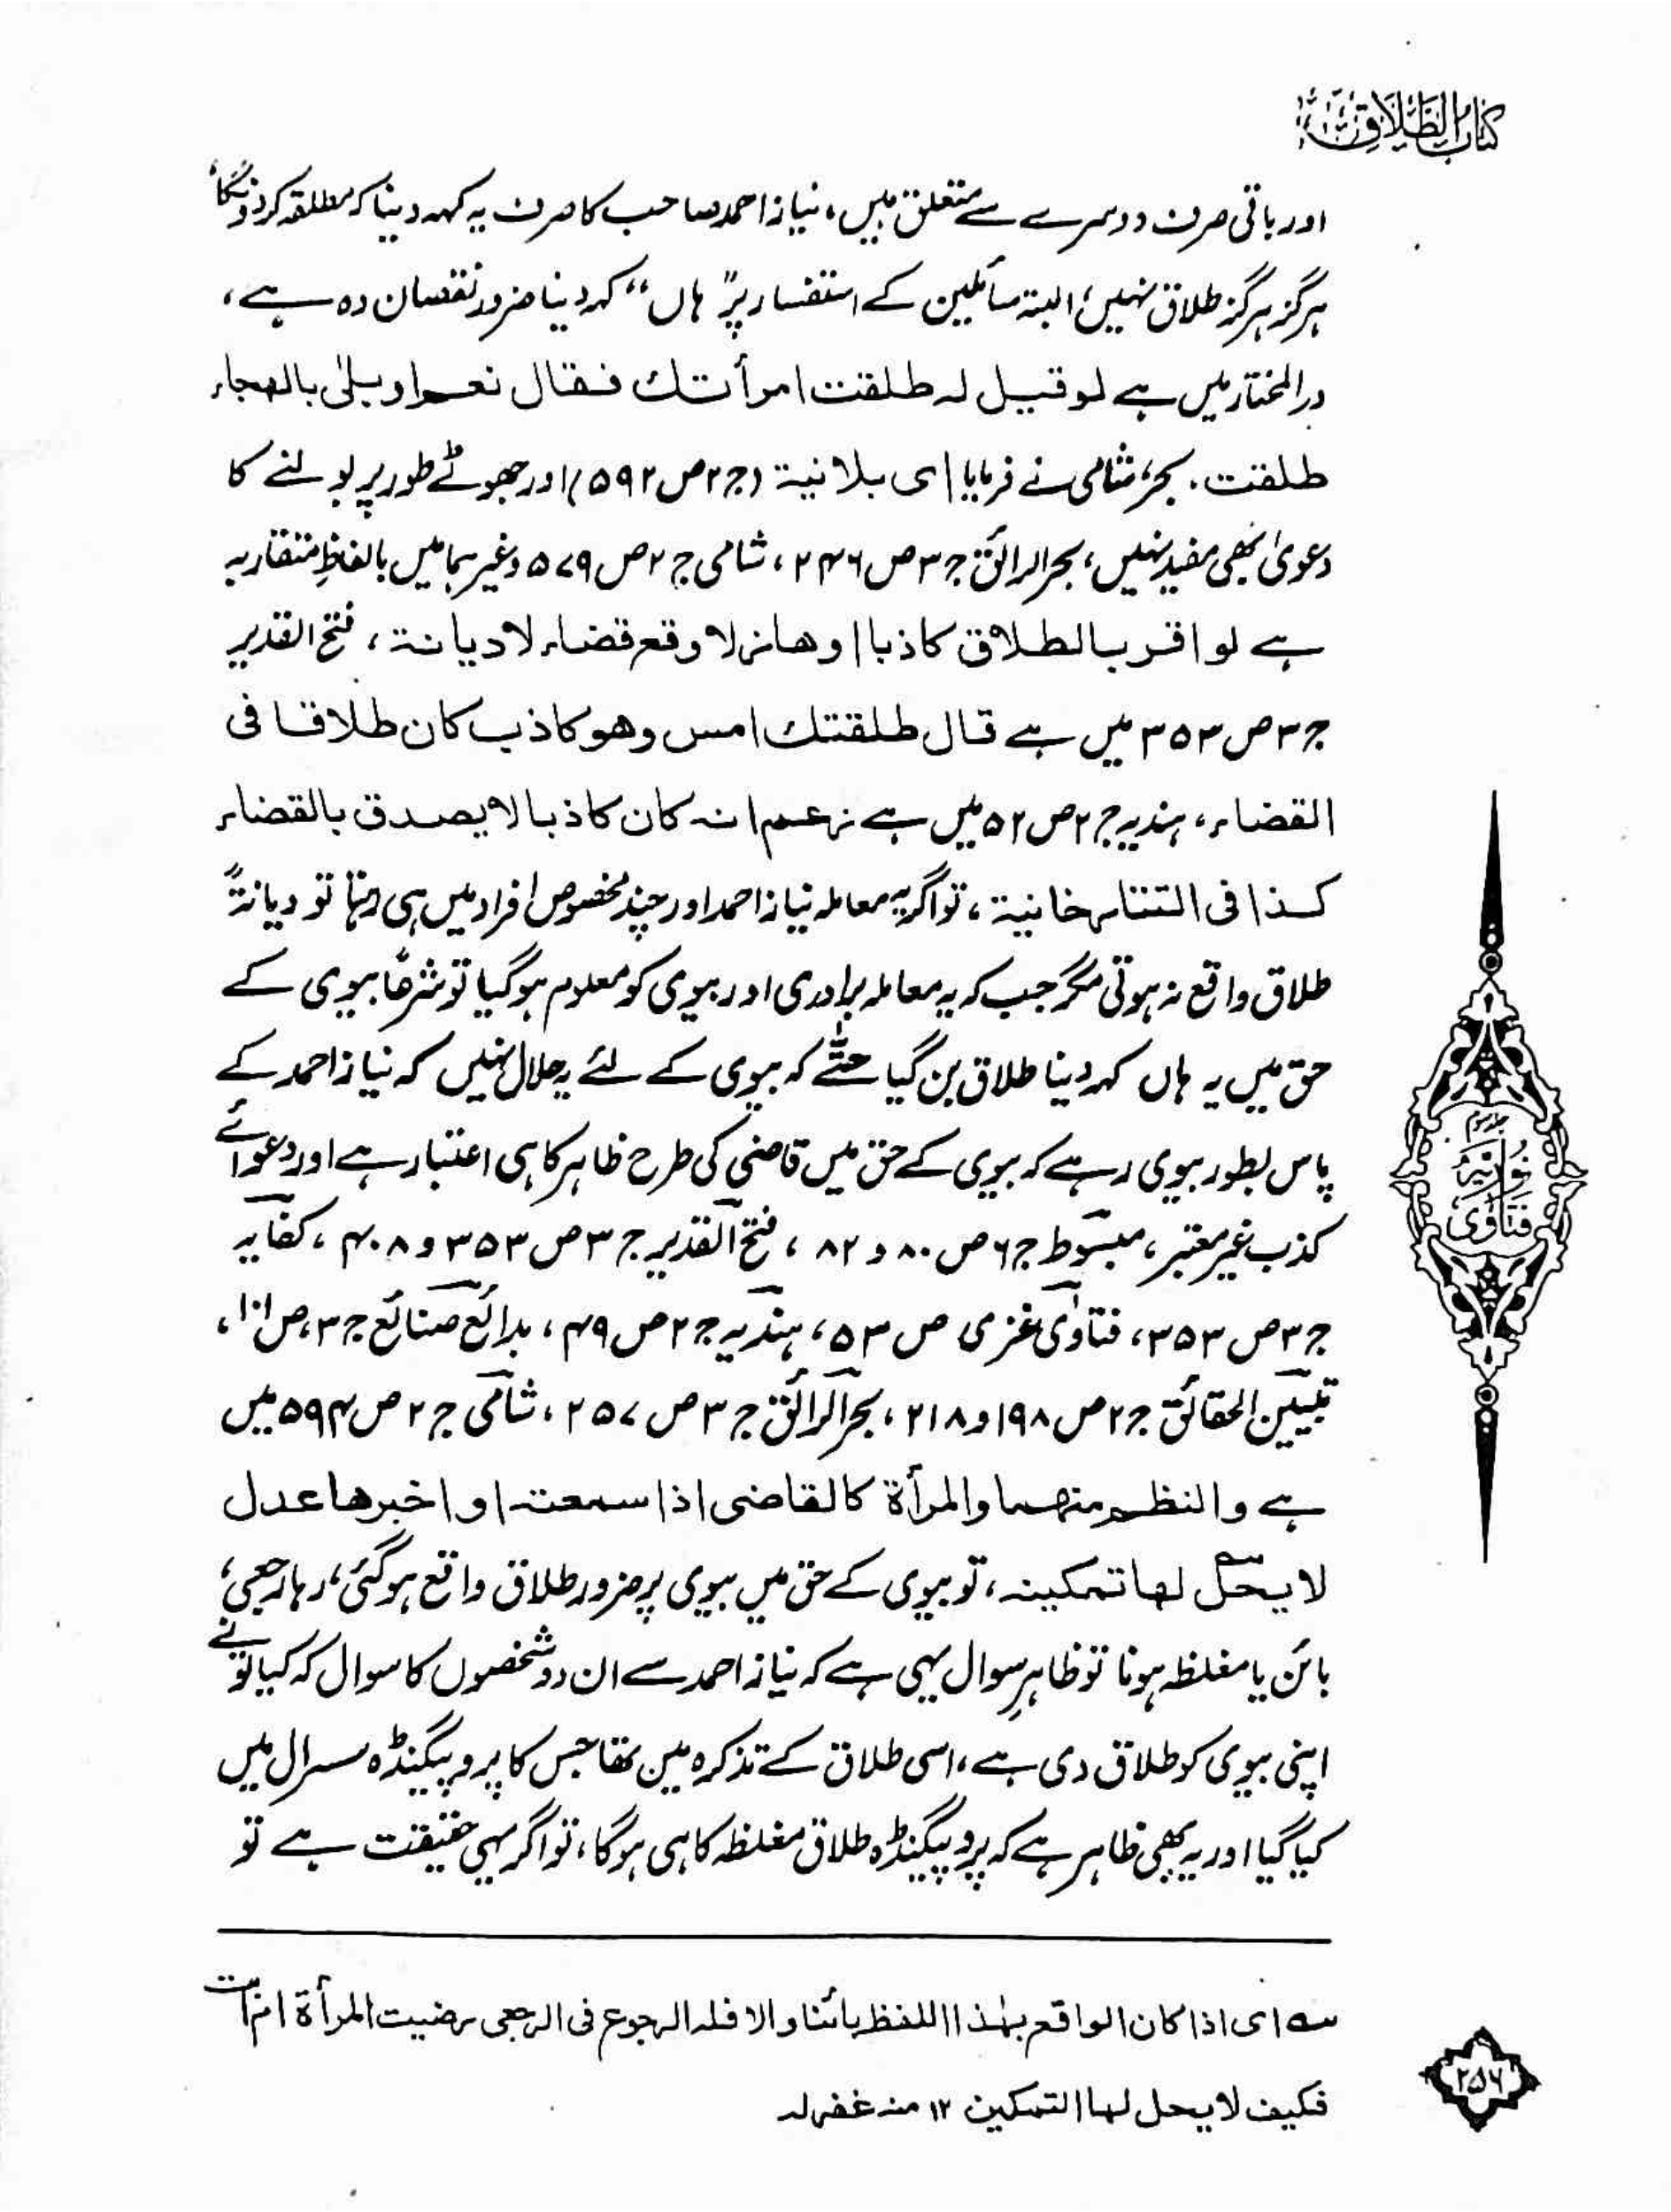 کتاب الطلاق
اور باقی صرف دوسرے سے متعلق ہیں، نیاز احمد صاحب کا صرف یہ کہہ دینا کہ مطلقہ کر دونگا،
ہرگز ہرگز طلاق نہیں؛ البتہ سائلین کے استفسار پر ”ہاں“ کہہ دینا ضرور نقصان دہ ہے،
درالمختار میں ہے لو قیل لہ طلقت امرأتك فقال نعم او بلیٰ بالھجاء
طلقت. بحر، شامی نے فرمایا ای بلا نیۃ (ج۲ ص ۵۹۲) اور جھوٹے طور پر بولنے کا
دعویٰ بھی مفید نہیں، بحرالرائق ج۳ ص ۲۴۶، شامی ج۲ ص ۵۷۹ وغیرہما میں بالفاظِ متقاربہ
ہے لو اقر بالطلاق کاذبا او ھازلا وقع قضاء لا دیانۃ، فتح القدیر
ج۳ ص ۳۵۳ میں ہے قال طلقتك امس وھو کاذب کان طلاقا فی
القضاء، ہندیہ ج۲ ص ۵۲ میں ہے زعم انہ کان کاذبا لا یصدق بالقضاء
کذا فی التتارخانیۃ، تو اگر یہ معاملہ نیاز احمد اور چند مخصوص افراد میں ہی رہتا تو دیانۃً
طلاق واقع نہ ہوتی مگر جب کہ یہ معاملہ برادری اور بیوی کو معلوم ہوگیا تو شرعًا بیوی کے
حق میں یہ ہاں کہہ دینا طلاق بن گیا حتّٰے کہ بیوی کے لئے یہ حلال نہیں کہ نیاز احمد کے
پاس بطور بیوی رہے کہ بیوی کے حق میں قاضی کی طرح ظاہر کا ہی اعتبار ہے اور دعوائے
کذب غیر معتبر، مبسوط ج۶ ص ۸۰ و ۸۲، فتح القدیر ج۳ ص ۳۵۳ و ۴۰۸، کفایہ
ج۳ ص ۳۵۳، فتاوٰی غزی ص ۵۳، ہندیہ ج۲ ص ۴۹، بدائع صنائع ج۳، ص ۱۰۱،
تبیین الحقائق ج۲ ص ۱۹۸ و ۲۱۸، بحرالرائق ج۳ ص ۲۵۷، شامی ج۲ ص ۵۹۴ میں
ہے والنظم منھما والمرأۃ کالقاضی اذا سمعتہ او اخبرھا عدل
لا یحل لھا تمکینہ، تو بیوی کے حق میں بیوی پر ضرور طلاق واقع ہوگئی، رہا رجعی،
بائن یا مغلظہ ہونا تو ظاہرِ سوال یہی ہے کہ نیاز احمد سے ان دو شخصوں کا سوال کہ کیا تو نے
اپنی بیوی کو طلاق دی ہے، اسی طلاق کے تذکرہ میں تھا جس کا پروپیگنڈہ سسرال میں
کیا گیا اور یہ بھی ظاہر ہے کہ پروپیگنڈہ طلاق مغلظہ کا ہی ہوگا، تو اگر یہی حقیقت ہے تو
سہ ای اذا کان الواقع بھٰذا اللفظ بائنا والا فلہ الرجوع فی الرجعی رضیت المرأۃ ام ابت
فکیف لا یحل لھا التمکین ۱۲ منہ غفرلہ
نوریہ
فتاوی
۲۵۶